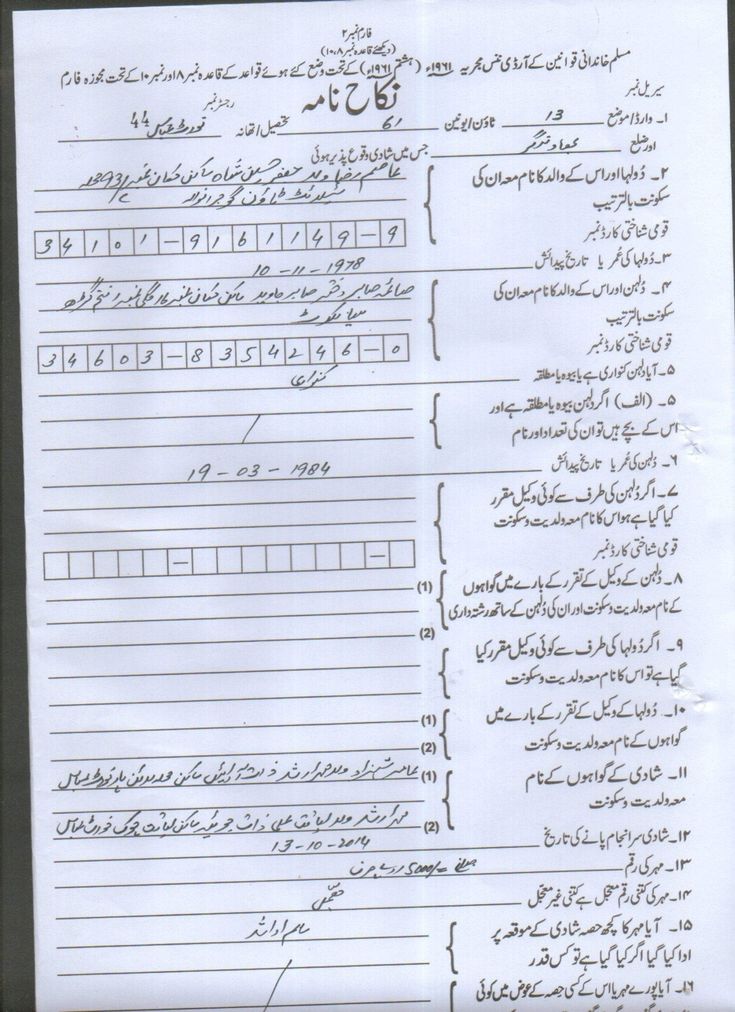 فارم نمبر ۲
(دیکھئے قاعدہ نمبر ۸، ۱۰)
مسلم خاندانی قوانین کے آرڈی ننس مجریہ ۱۹۶۱ء (ہشتم ۱۹۶۱ء) کے تحت وضع کئے ہوئے قواعد کے قاعدہ نمبر ۸ اور نمبر ۱۰ کے تحت مجوزہ فارم
سیریل نمبر نکاح نامہ رجسٹر نمبر
۱۔ وارڈ/موضع 13 ٹاؤن/یونین 61 تحصیل/تھانہ فورٹ عباس 44
اور ضلع بہاولنگر جس میں شادی وقوع پذیر ہوئی
۲۔ دُولہا اور اس کے والد کا نام معہ ان کی عاصم رضا ولد جعفر حسین شاہ ساکن مکان نمبر
سکونت بالترتیب سیٹلائٹ ٹاؤن گوجرانوالہ
قومی شناختی کارڈ نمبر 34101-9161149-9
۳۔ دُولہا کی عُمر یا تاریخ پیدائش 10-11-1978
۴۔ دُلہن اور اس کے والد کا نام معہ ان کی صائمہ صابر دختر صابر جاوید ساکن مکان نمبر
سکونت بالترتیب سیالکوٹ
قومی شناختی کارڈ نمبر 34603-8354246-0
۵۔ آیا دلہن کنواری ہے یا بیوہ یا مطلقہ کنواری
۵۔ (الف) اگر دُلہن بیوہ یا مطلقہ ہے اور
اس کے بچے ہیں تو ان کی تعداد اور نام /
۶۔ دُلہن کی عُمر یا تاریخ پیدائش 19-03-1984
۷۔ اگر دُلہن کی طرف سے کوئی وکیل مقرر
کیا گیا ہو اس کا نام معہ ولدیت و سکونت
قومی شناختی کارڈ نمبر – –
۸۔ دُلہن کے وکیل کے تقرر کے بارے میں گواہوں (1)
کے نام معہ ولدیت و سکونت اور ان کی دُلہن کے ساتھ رشتہ داری
(2)
۹۔ اگر دُولہا کی طرف سے کوئی وکیل مقرر کیا
گیا ہے تو اس کا نام معہ ولدیت و سکونت
۱۰۔ دُولہا کے وکیل کے تقرر کے بارے میں (1)
گواہوں کے نام معہ ولدیت و سکونت (2)
۱۱۔ شادی کے گواہوں کے نام (1) عامر شہزاد ولد مہر ارشد ذات آرائیں ساکن فورٹ عباس
معہ ولدیت و سکونت
(2) مہر ارشد ولد لیاقت علی ذات ساکن لیاقت چوک فورٹ عباس
۱۲۔ شادی سرانجام پانے کی تاریخ 13-10-2014
۱۳۔ مہر کی رقم مبلغ =/5000 روپے صرف
۱۴۔ مہر کی کتنی رقم معجل ہے کتنی غیر معجل معجل
۱۵۔ آیا مہر کا کچھ حصہ شادی کے موقعہ پر
ادا کیا گیا اگر کیا گیا ہے تو کس قدر
/
۱۶۔ آیا پورے مہر یا اس کے کسی حصہ کے عوض میں کوئی